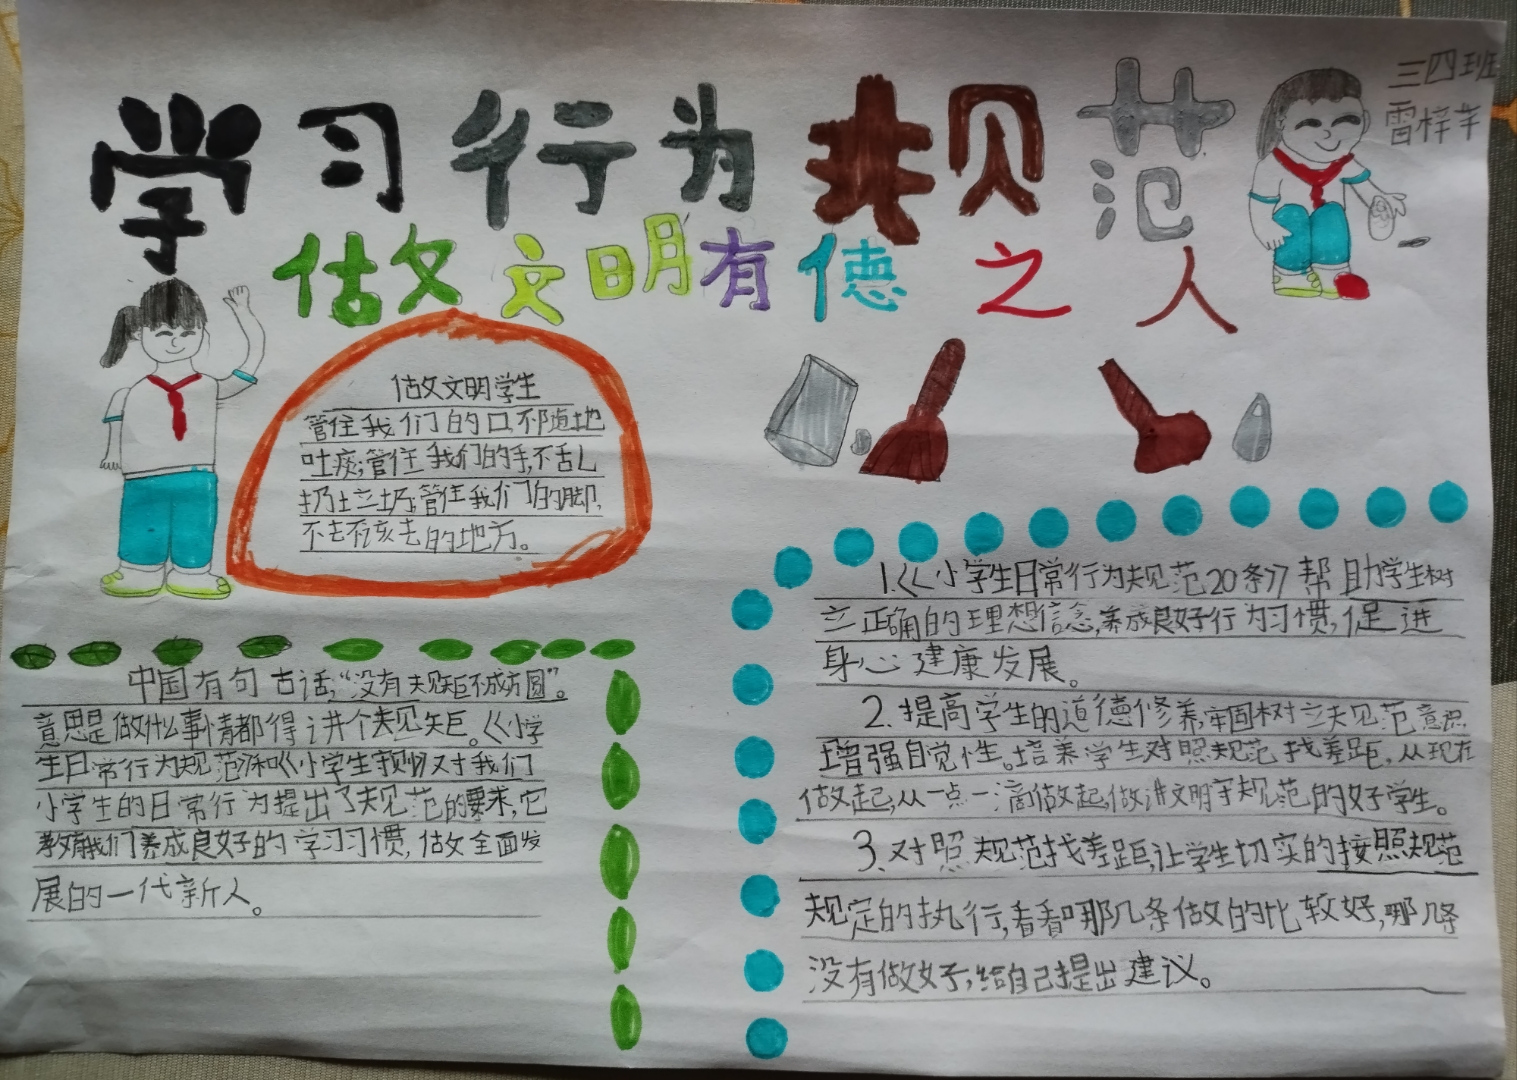 学习行为规范
三四班
雷梓芊
做文明有德之人
做文明学生
管住我们的口不随地
吐痰;管住我们的手,不乱
扔垃圾;管住我们的脚,
不去不该去的地方。
中国有句古话,“没有规矩不成方圆”。
意思是做什么事情都得讲个规矩。《小学
生日常行为规范》和《小学生守则》对我们
小学生的日常行为提出了规范的要求,它
教育我们养成良好的学习习惯,做全面发
展的一代新人。
1.《小学生日常行为规范20条》帮助学生树
立正确的理想信念,养成良好行为习惯,促进
身心健康发展。
2.提高学生的道德修养,牢固树立规范意识
增强自觉性。培养学生对照规范找差距,从现在
做起,从一点一滴做起,做讲文明守规范的好学生。
3.对照规范找差距,让学生切实的按照规范
规定的执行,看看哪几条做的比较好,哪几条
没有做好,给自己提出建议。